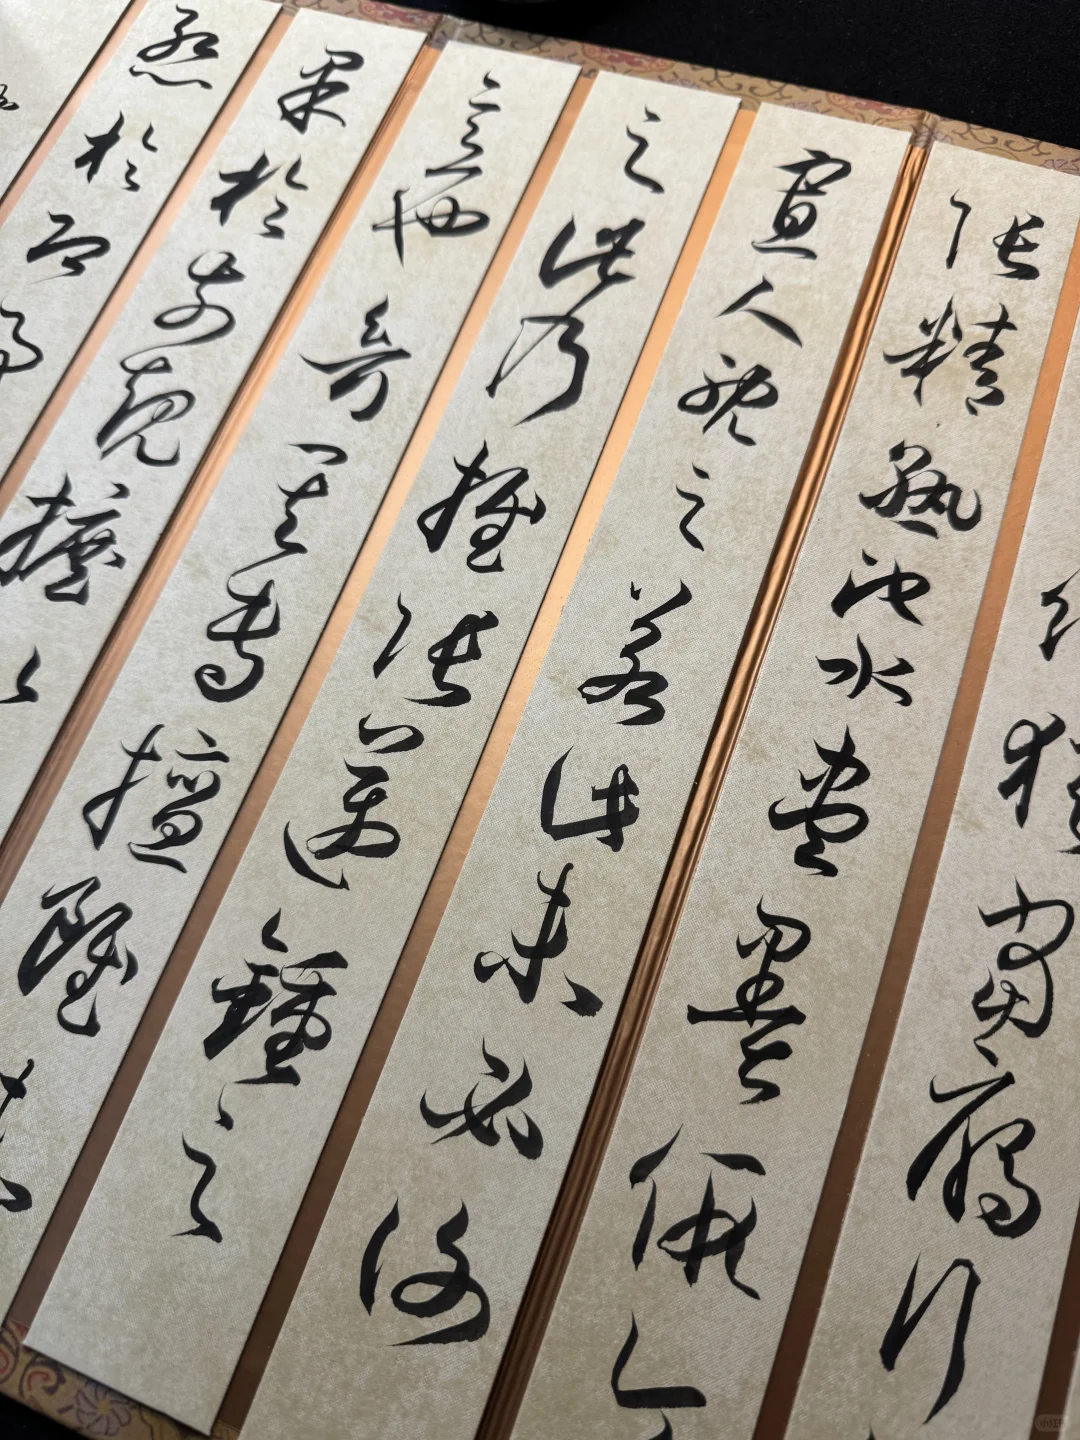 猶當雁行
張精熟池水盡墨假令
寡人耽之若此未必謝
之此乃推張邁鍾之
意也考其專擅雖
果於前規摭以
慙於即